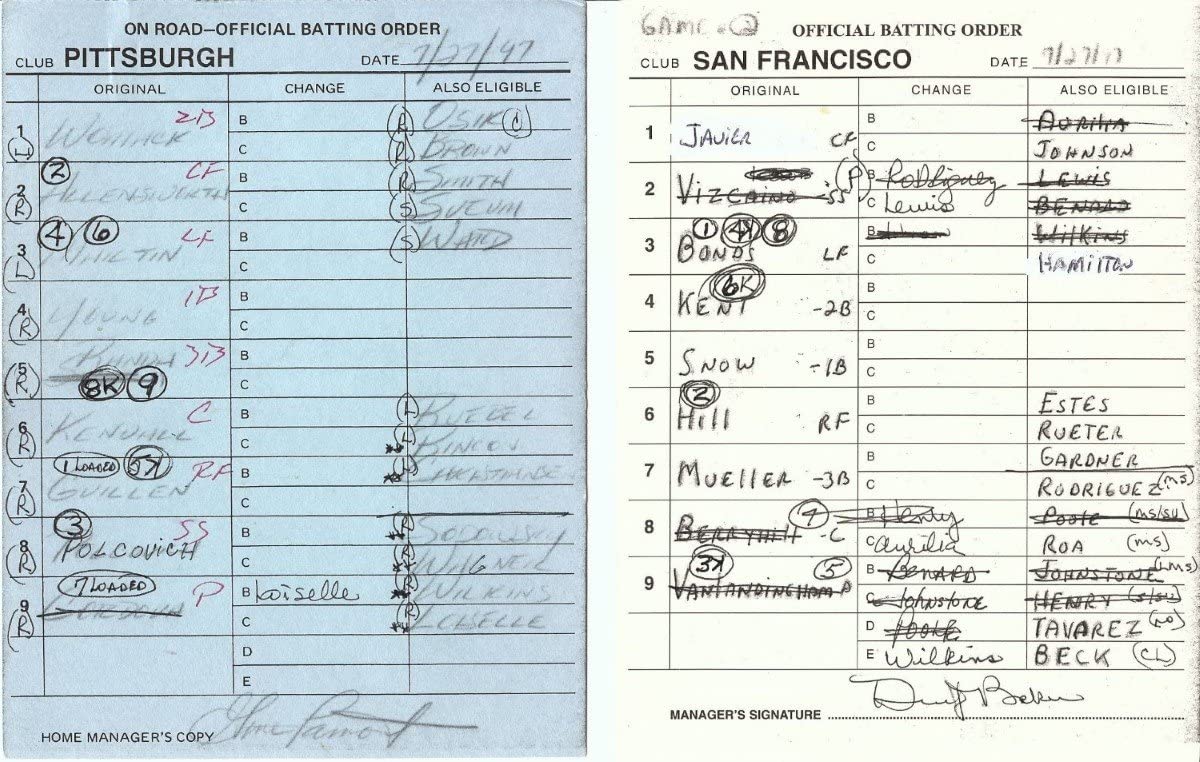 ON ROAD—OFFICIAL BATTING ORDER
CLUB PITTSBURGH DATE 7/27/97
ORIGINAL CHANGE ALSO ELIGIBLE
1 (L) WOMACK 2B B (R) OSIK (C)
C (R) BROWN
2 (R) 2 CF B (R) SMITH
C (S) SVEUM
3 (L) 4 6 MARTIN LF B (S) WARD
C
4 (R) YOUNG 1B B
C
5 (R) 3B B
8K 9 C
6 (R) KENDALL C B (L) RUEBEL
C (L) RINCON
7 (R) 1 LOADED 5K RF B (L) CHRISTIANSEN
GUILLEN C
8 (R) 3 SS B (R) SODOWSKY
POLCOVICH C (R) WAGNER
9 (R) 7 LOADED P B Loiselle (R) WILKINS
C (R) LOISELLE
D
E
HOME MANAGER'S COPY
GAME 2 OFFICIAL BATTING ORDER
CLUB SAN FRANCISCO DATE 7/27/97
ORIGINAL CHANGE ALSO ELIGIBLE
1 JAVIER CF B AURILIA
C JOHNSON
2 VIZCAINO -SS (P) B Rodriguez LEWIS
C Lewis BENARD
3 1 4K 8 BONDS LF B WILKINS
C HAMILTON
4 6K KENT -2B B
C
5 SNOW -1B B
C
6 2 Hill RF B ESTES
C RUETER
7 MUELLER -3B B GARDNER
C RODRIGUEZ (MS)
8 BERRYHILL -C 9 B Henry Poole (MS/SU)
C Aurilia ROA (MS)
9 3K 5 VANLANDINGHAM P B BENARD JOHNSTONE (LMS)
C Johnstone HENRY (S/SU)
D Poole TAVAREZ
E Wilkins BECK (CL)
MANAGER'S SIGNATURE Dusty Baker